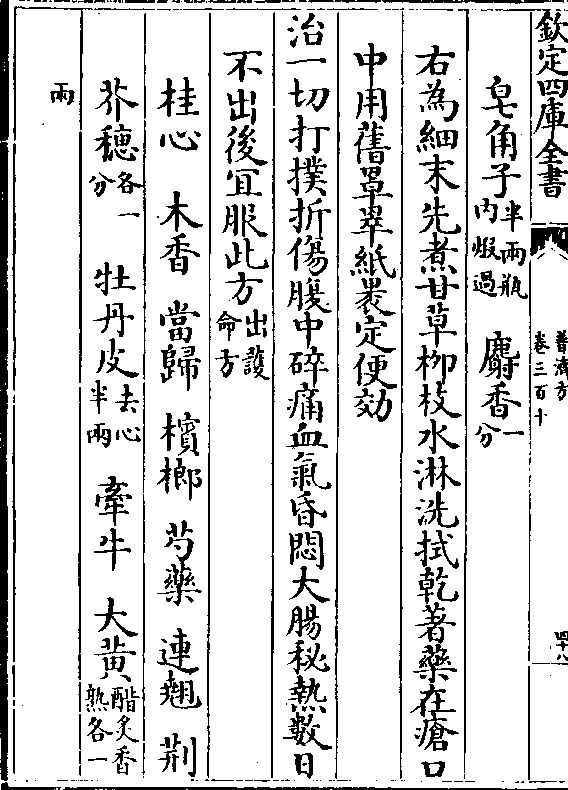 欽定四庫全書
普濟方
卷三百十
四十八
皂角子半兩瓶内煅過　麝香一分
右為細末先煮甘草柳枝水淋洗拭乾著藥在瘡口
中用舊罩翠紙裹定便効
治一切打撲折傷腹中碎痛血氣昏悶大腸秘熱數日
不出後宜服此方出護命方
桂心　木香　當歸　檳榔　芍藥　連翹　荆
芥穗各一分　牡丹皮去心半兩　牽牛　大黄醋炙香熟各一
兩